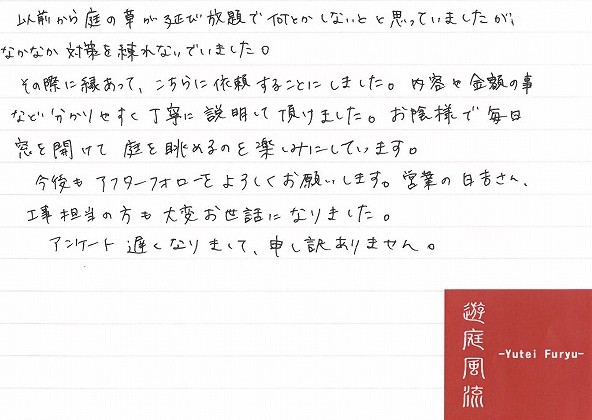 以前から庭の草が延び放題で何とかしないとと思っていましたが、
なかなか対策を練れないでいました。
その際に縁あって、こちらに依頼することにしました。内容や金額の事
など分かりやすく丁寧に説明して頂けました。お陰様で毎日
窓を開けて庭を眺めるのを楽しみにしています。
今後もアフターフォローをよろしくお願いします。営業の日吉さん、
工事担当の方も大変お世話になりました。
アンケート遅くなりまして、申し訳ありません。
遊庭風流
-Yutei Furyu-